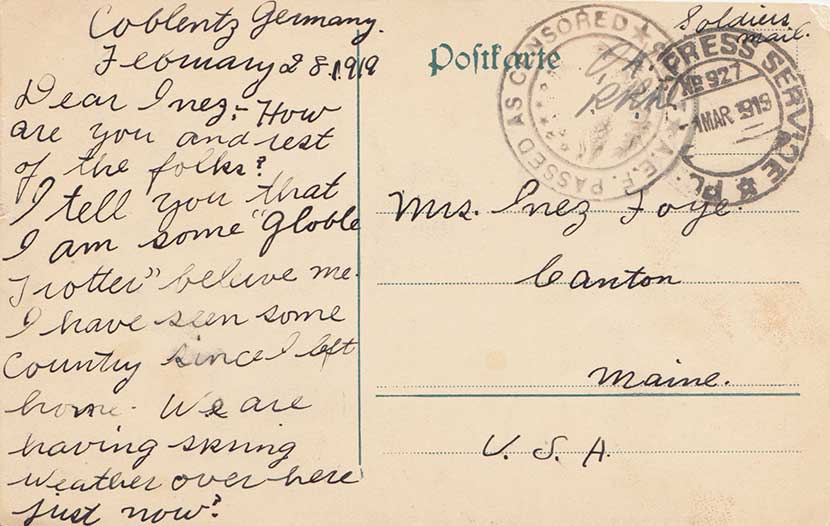 Coblentz Germany.
February 28, 1919
Dear Inez;- How
are you and rest
of the folks?
I tell you that
I am some "Globle
Trotter" beleive me.
I have seen some
Country since I left
home. We are
having skring
weather over here
just now?
Postkarte
Soldiers
mail.
PASSED AS CENSORED
A.E.F.
PRESS SERVICE
No 927
1 MAR 1919
Mrs. Inez Foye.
Canton
Maine.
U. S. A.